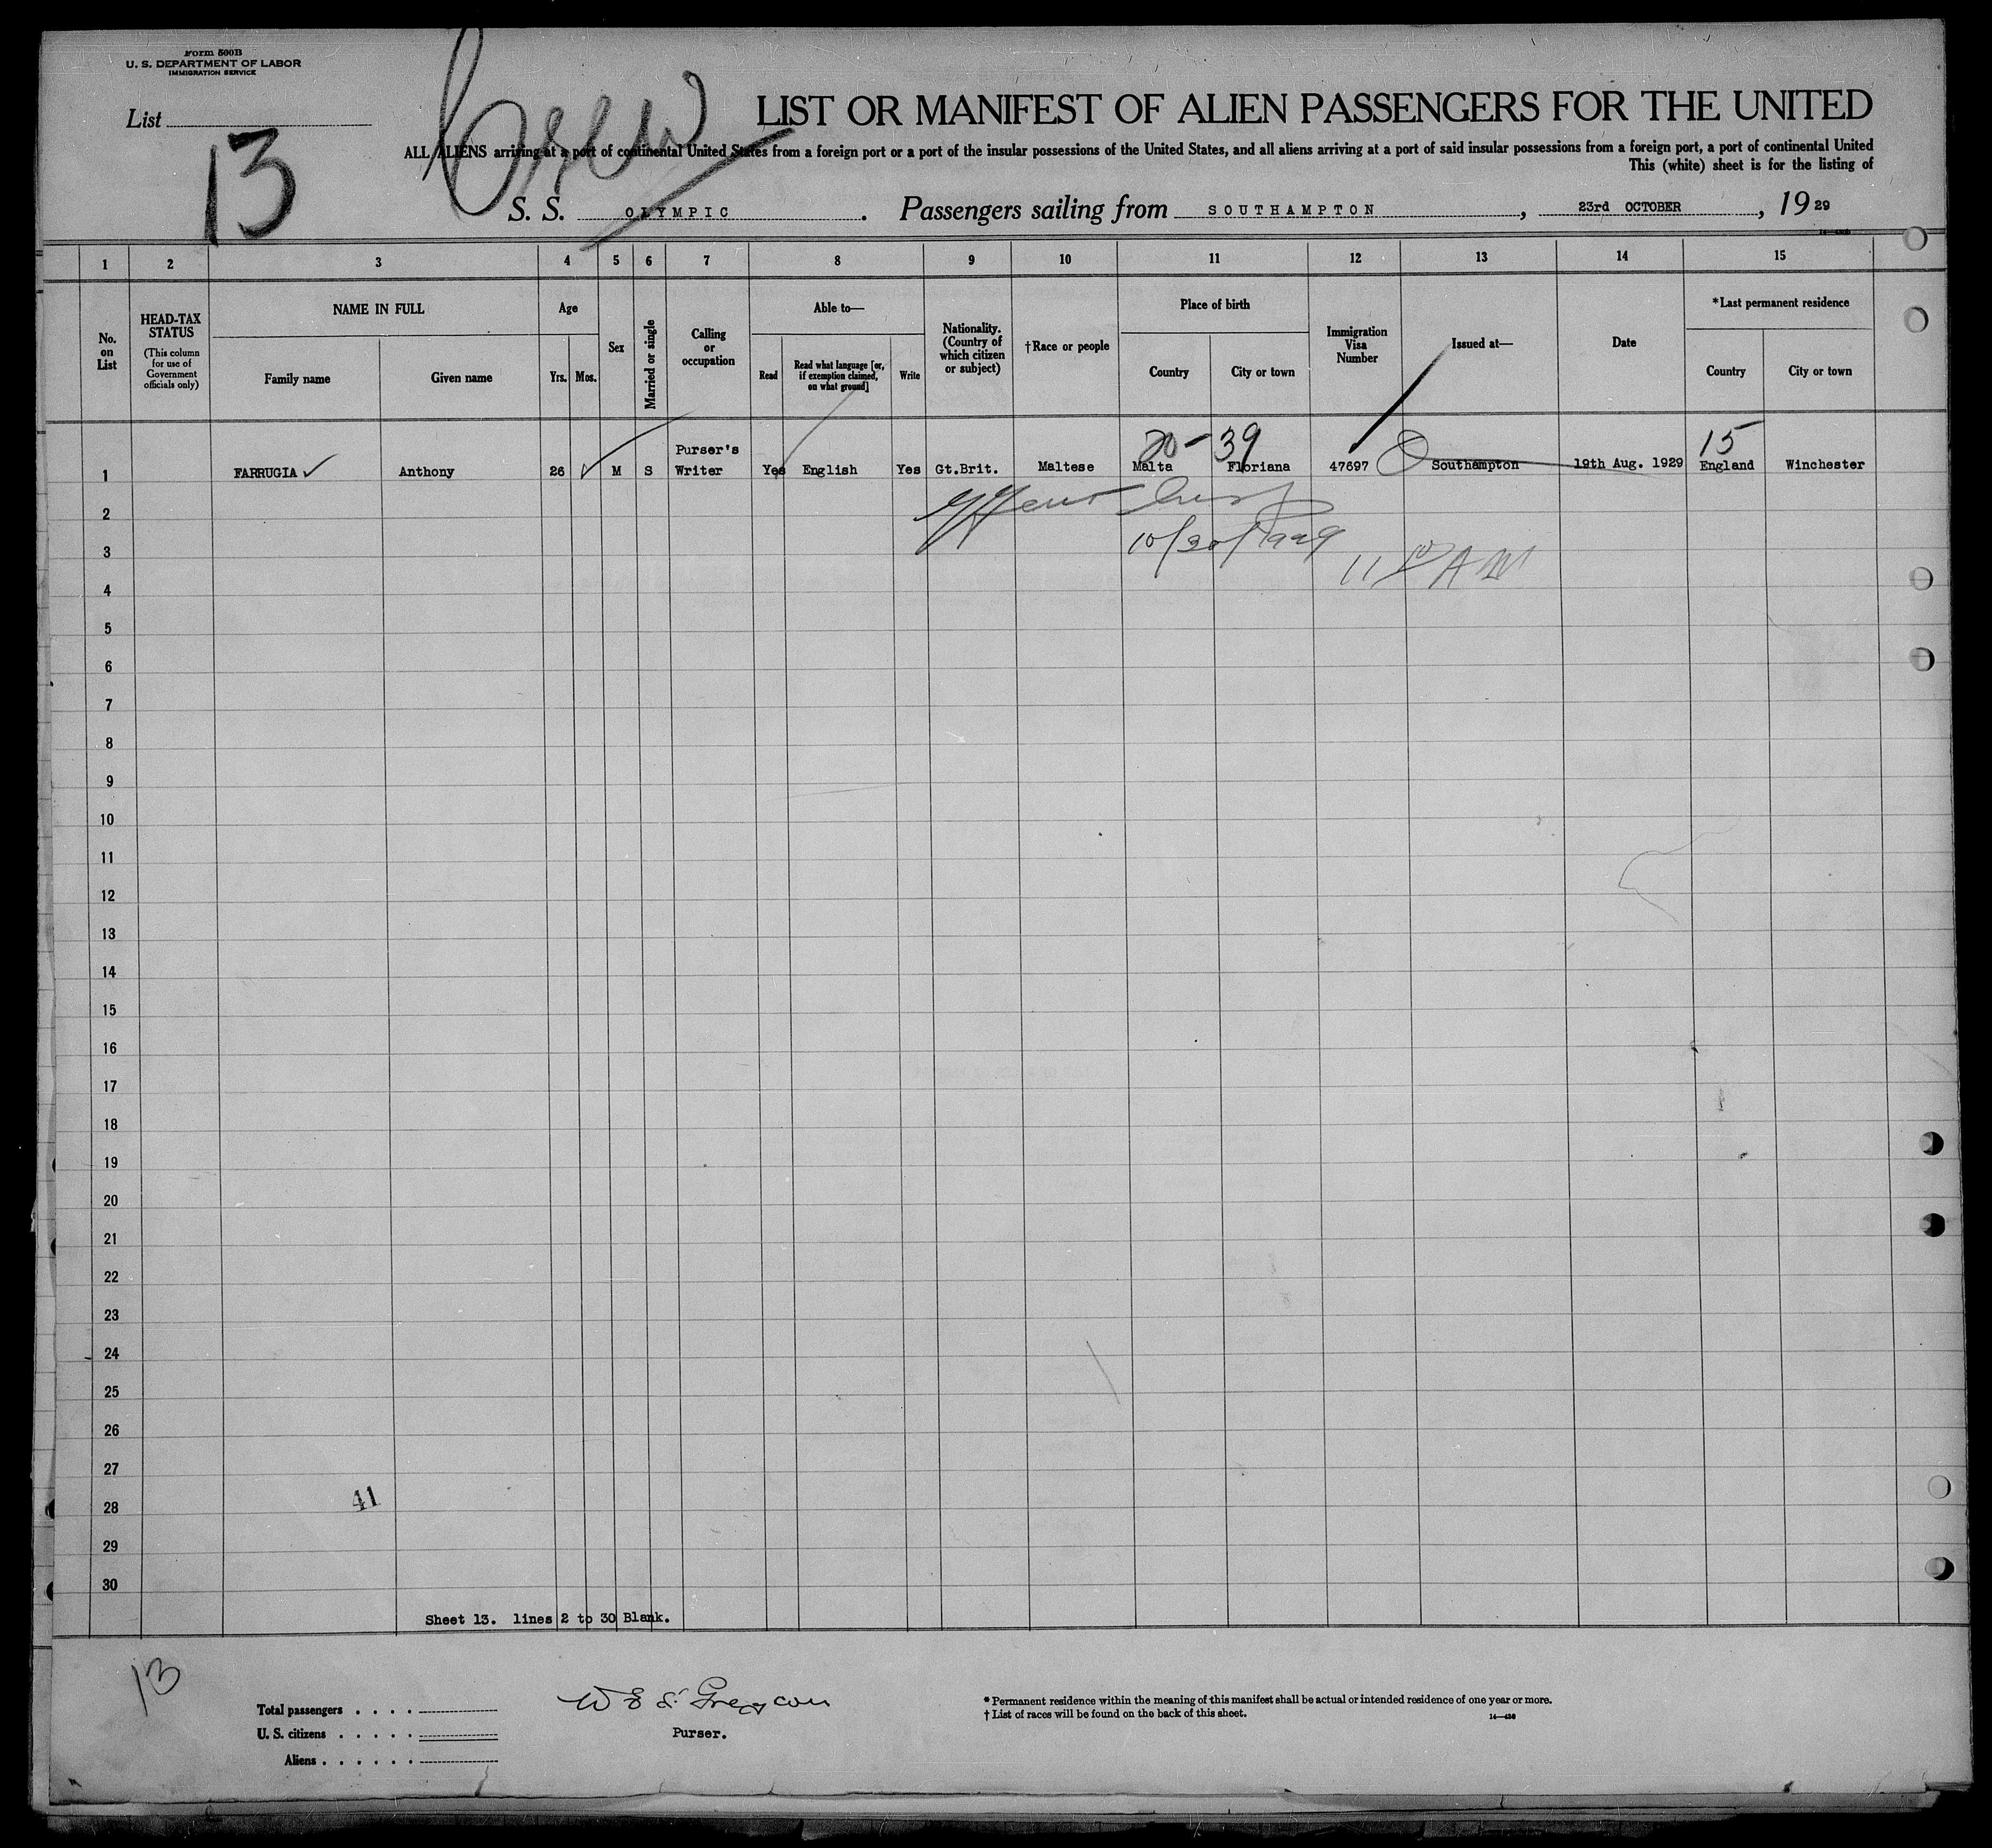 Form 500B
U. S. DEPARTMENT OF LABOR
IMMIGRATION SERVICE
List
13
Crew
LIST OR MANIFEST OF ALIEN PASSENGERS FOR THE UNITED
ALL ALIENS arriving at a port of continental United States from a foreign port or a port of the insular possessions of the United States, and all aliens arriving at a port of said insular possessions from a foreign port, a port of continental United
This (white) sheet is for the listing of
S. S. OLYMPIC . Passengers sailing from SOUTHAMPTON , 23rd OCTOBER , 19 29
1 2 3 4 5 6 7 8 9 10 11 12 13 14 15
No. on List
HEAD-TAX STATUS
(This column for use of Government officials only)
NAME IN FULL
Family name Given name
Age
Yrs. Mos.
Sex
Married or single
Calling or occupation
Able to—
Read
Read what language [or, if exemption claimed, on what ground]
Write
Nationality. (Country of which citizen or subject)
†Race or people
Place of birth
Country City or town
Immigration Visa Number
Issued at—
Date
*Last permanent residence
Country City or town
20-39 15
1 FARRUGIA ✓ Anthony 26 ✓ M S Purser's Writer Yes English Yes Gt.Brit. Maltese Malta Floriana 47697 Southampton 19th Aug. 1929 England Winchester
2
10/30/1929
3
11 10 AM
4
5
6
7
8
9
10
11
12
13
14
15
16
17
18
19
20
21
22
23
24
25
26
27
28 41
29
30
Sheet 13. lines 2 to 30 Blank.
13
Total passengers . . . .
U. S. citizens . . . . .
Aliens . . . . . .
Purser.
* Permanent residence within the meaning of this manifest shall be actual or intended residence of one year or more.
† List of races will be found on the back of this sheet.